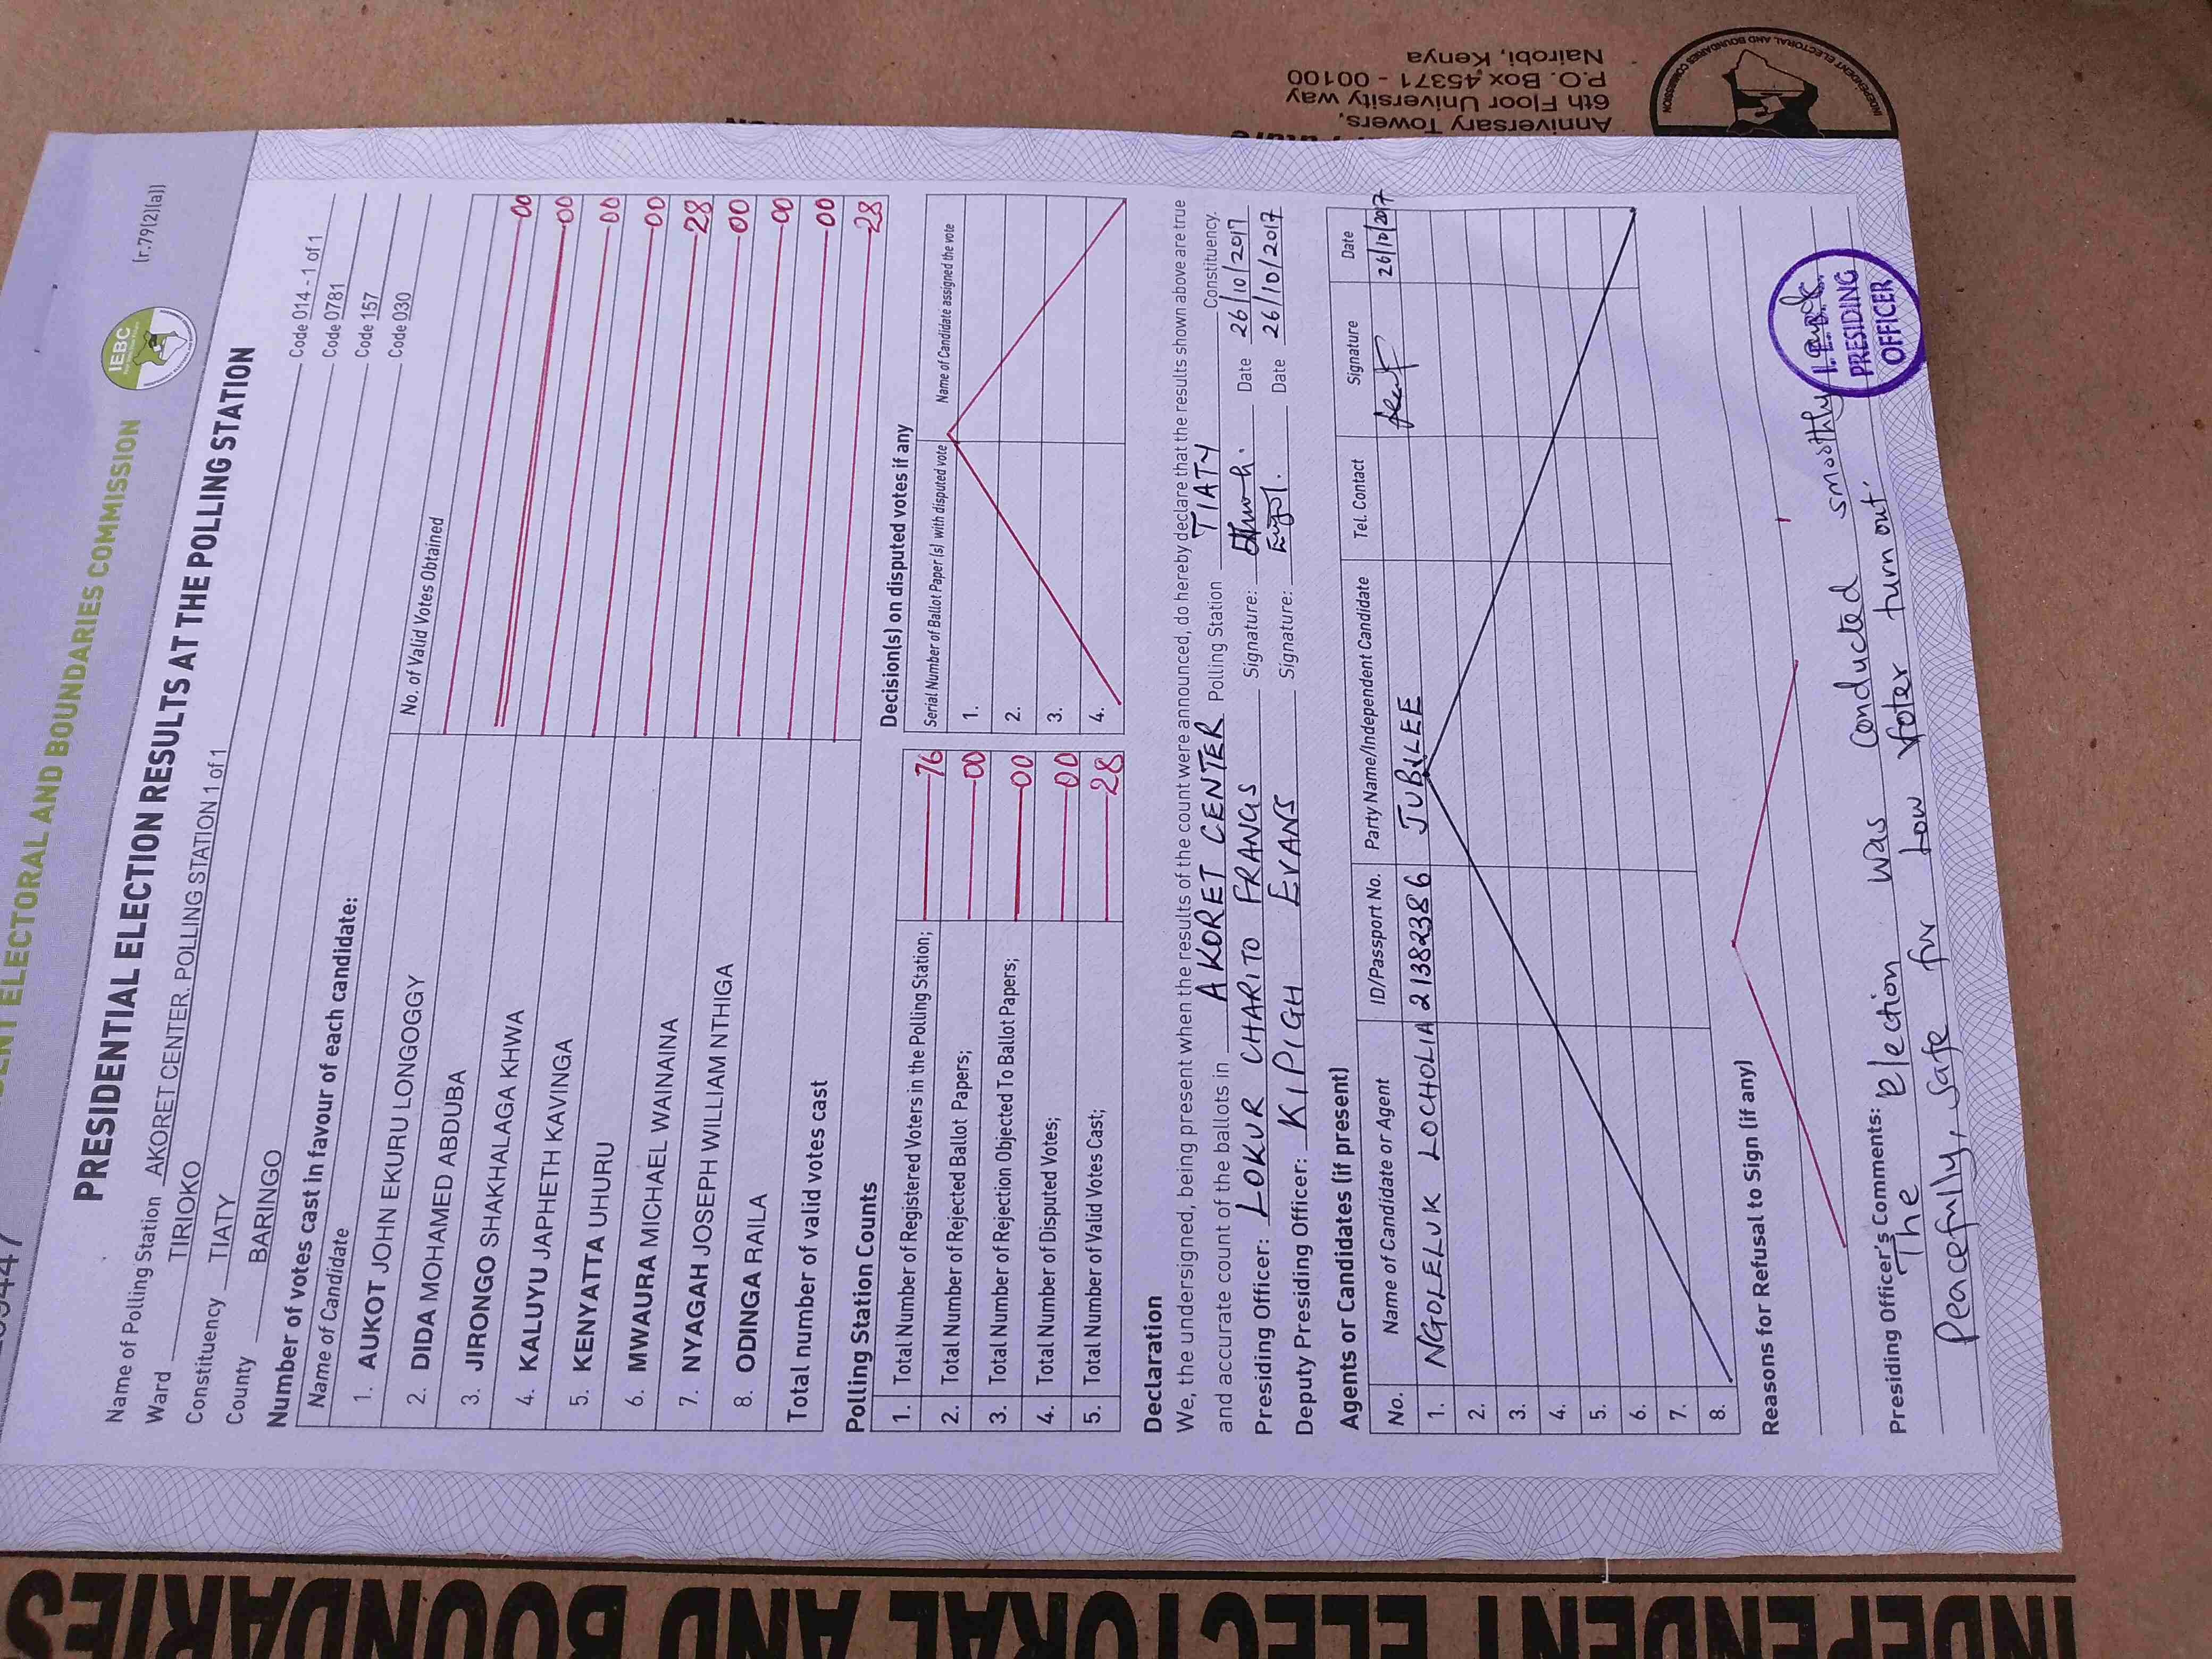 ENT ELECTORAL AND BOUNDARIES COMMISSION
IEBC
(r.79(2)(a))
PRESIDENTIAL ELECTION RESULTS AT THE POLLING STATION
Name of Polling Station AKORET CENTER. POLLING STATION 1 of 1 Code 014 - 1 of 1
Ward TIRIOKO Code 0781
Constituency TIATY Code 157
County BARINGO Code 030
Number of votes cast in favour of each candidate:
Name of Candidate No. of Valid Votes Obtained
1. AUKOT JOHN EKURU LONGOGGY 00
2. DIDA MOHAMED ABDUBA 00
3. JIRONGO SHAKHALAGA KHWA 00
4. KALUYU JAPHETH KAVINGA 00
5. KENYATTA UHURU 28
6. MWAURA MICHAEL WAINAINA 00
7. NYAGAH JOSEPH WILLIAM NTHIGA 00
8. ODINGA RAILA 00
Total number of valid votes cast 28
Polling Station Counts
1. Total Number of Registered Voters in the Polling Station; 76
2. Total Number of Rejected Ballot Papers; 00
3. Total Number of Rejection Objected To Ballot Papers; 00
4. Total Number of Disputed Votes; 00
5. Total Number of Valid Votes Cast; 28
Decision(s) on disputed votes if any
Serial Number of Ballot Paper (s) with disputed vote Name of Candidate assigned the vote
1.
2.
3.
4.
Declaration
We, the undersigned, being present when the results of the count were announced, do hereby declare that the results shown above are true
and accurate count of the ballots in AKORET CENTER Polling Station TIATY Constituency.
Presiding Officer: LOKUR CHARITO FRANCIS Signature: Date 26/10/2017
Deputy Presiding Officer: KIPIGH EVANS Signature: Date 26/10/2017
Agents or Candidates (if present)
No. Name of Candidate or Agent ID/Passport No. Party Name/Independent Candidate Tel. Contact Signature Date
1. NGOLELUK LOCHOLIA 21382386 JUBILEE 26/10/2017
2.
3.
4.
5.
6.
7.
8.
Reasons for Refusal to Sign (if any)
Presiding Officer's Comments:
The election was conducted smoothly
Peacefully, Safe for Low voter turn out.
I.E.B.C.
PRESIDING
OFFICER
INDEPENDENT ELECTORAL AND BOUNDARIES
Anniversary Towers,
6th Floor University way
P.O. Box 45371 - 00100
Nairobi, Kenya
INDEPENDENT ELECTORAL AND BOUNDARIES COMMISSION